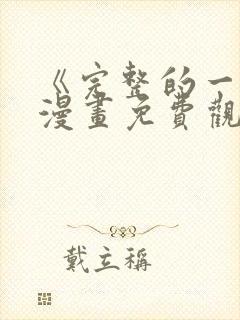 《完整的一
漫畫免費觀
戴立稱